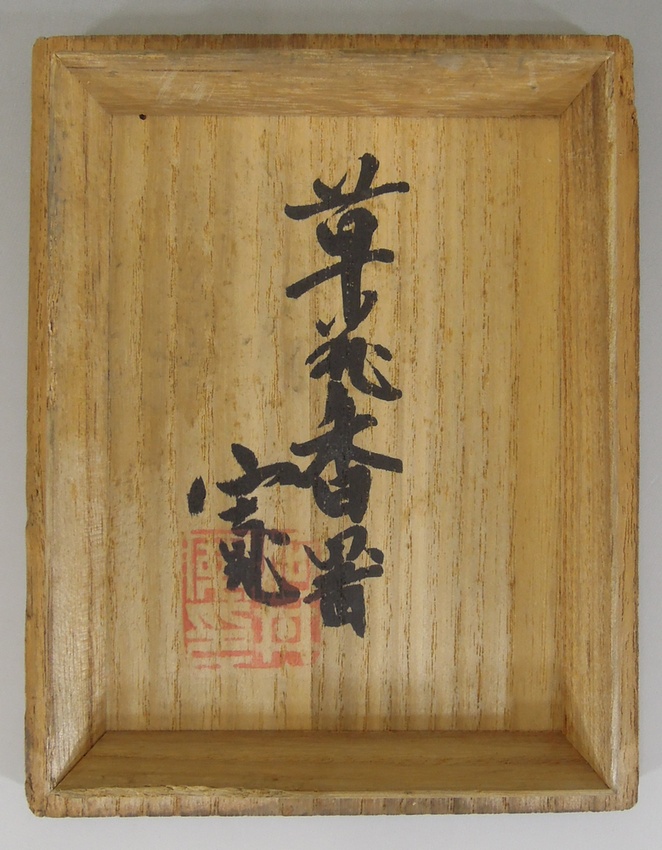 草花香器
寛